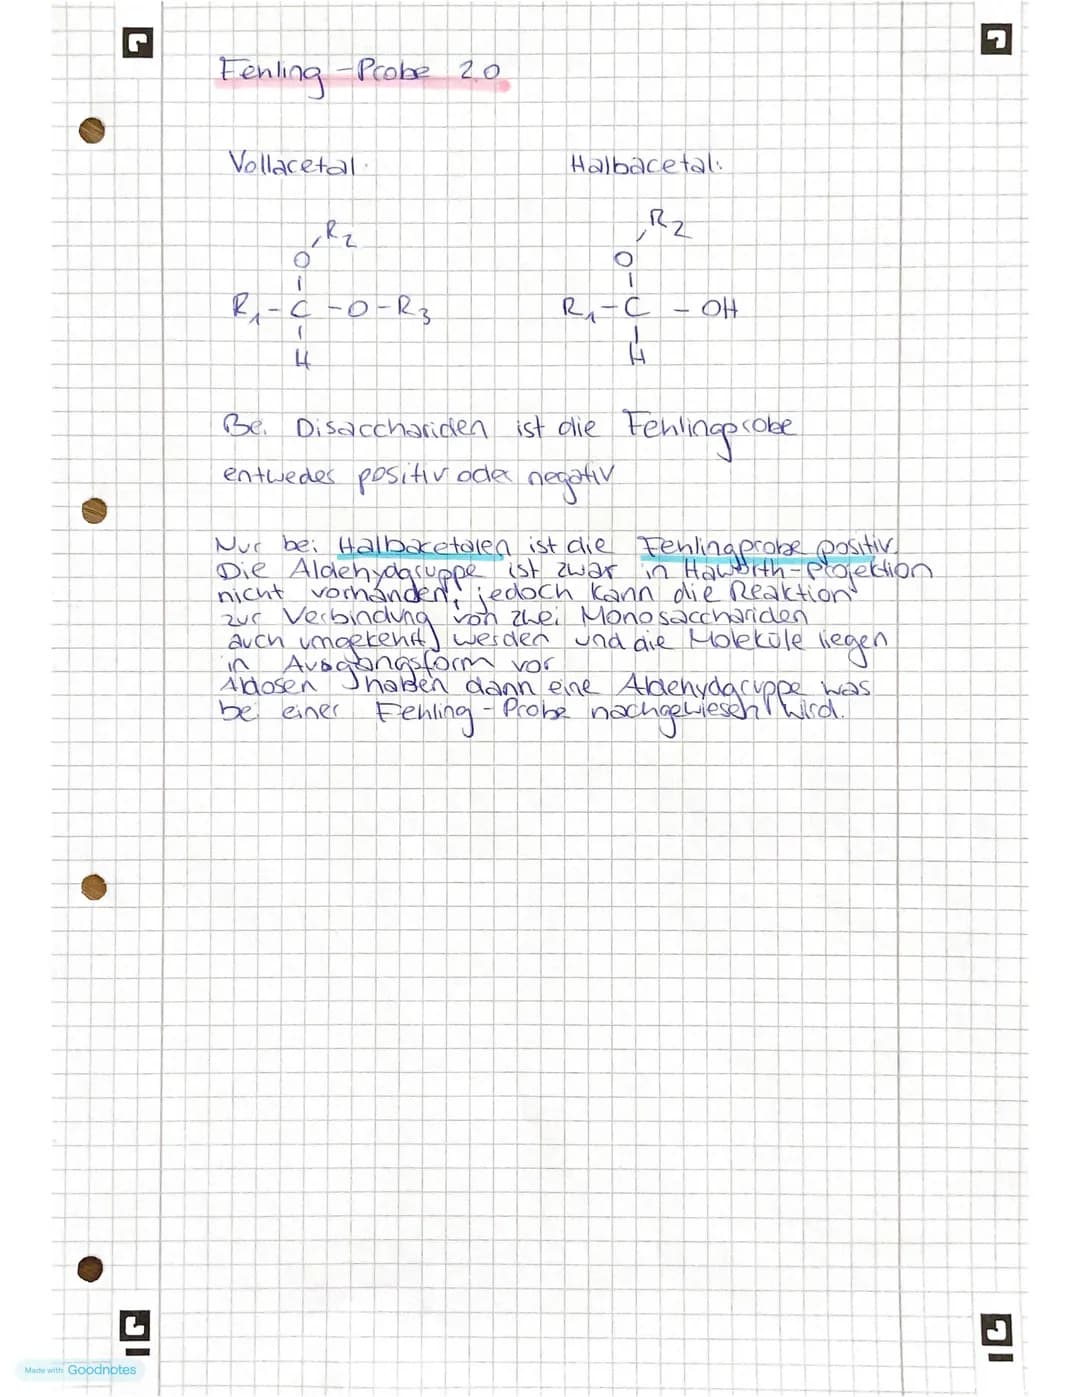 Fehling-Probe 2.0
Vollacetal: Halbacetal:
R2 R2
O O
R1-C-O-R3 R1-C-OH
H H
Bei Disacchariden ist die Fehlingprobe
entweder positiv oder negativ
Nur bei Halbacetalen ist die Fehlingprobe positiv.
Die Aldehydgruppe ist zwar in Haworth-Projektion
nicht vorhanden, jedoch kann die Reaktion
zur Verbindung von zwei Monosacchariden
auch umgekehrt werden und die Moleküle liegen
in Ausgangsform vor
Aldosen haben dann eine Aldehydgruppe was
bei einer Fehling-Probe nachgewiesen wird.
Made with Goodnotes